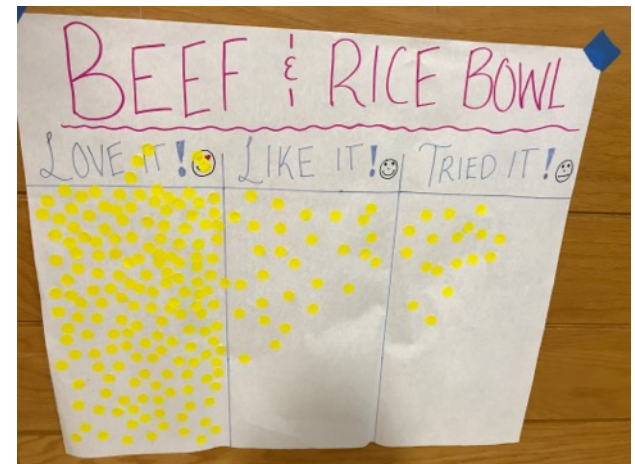 BEEF & RICE BOWL
LOVE IT! LIKE IT! TRIED IT!